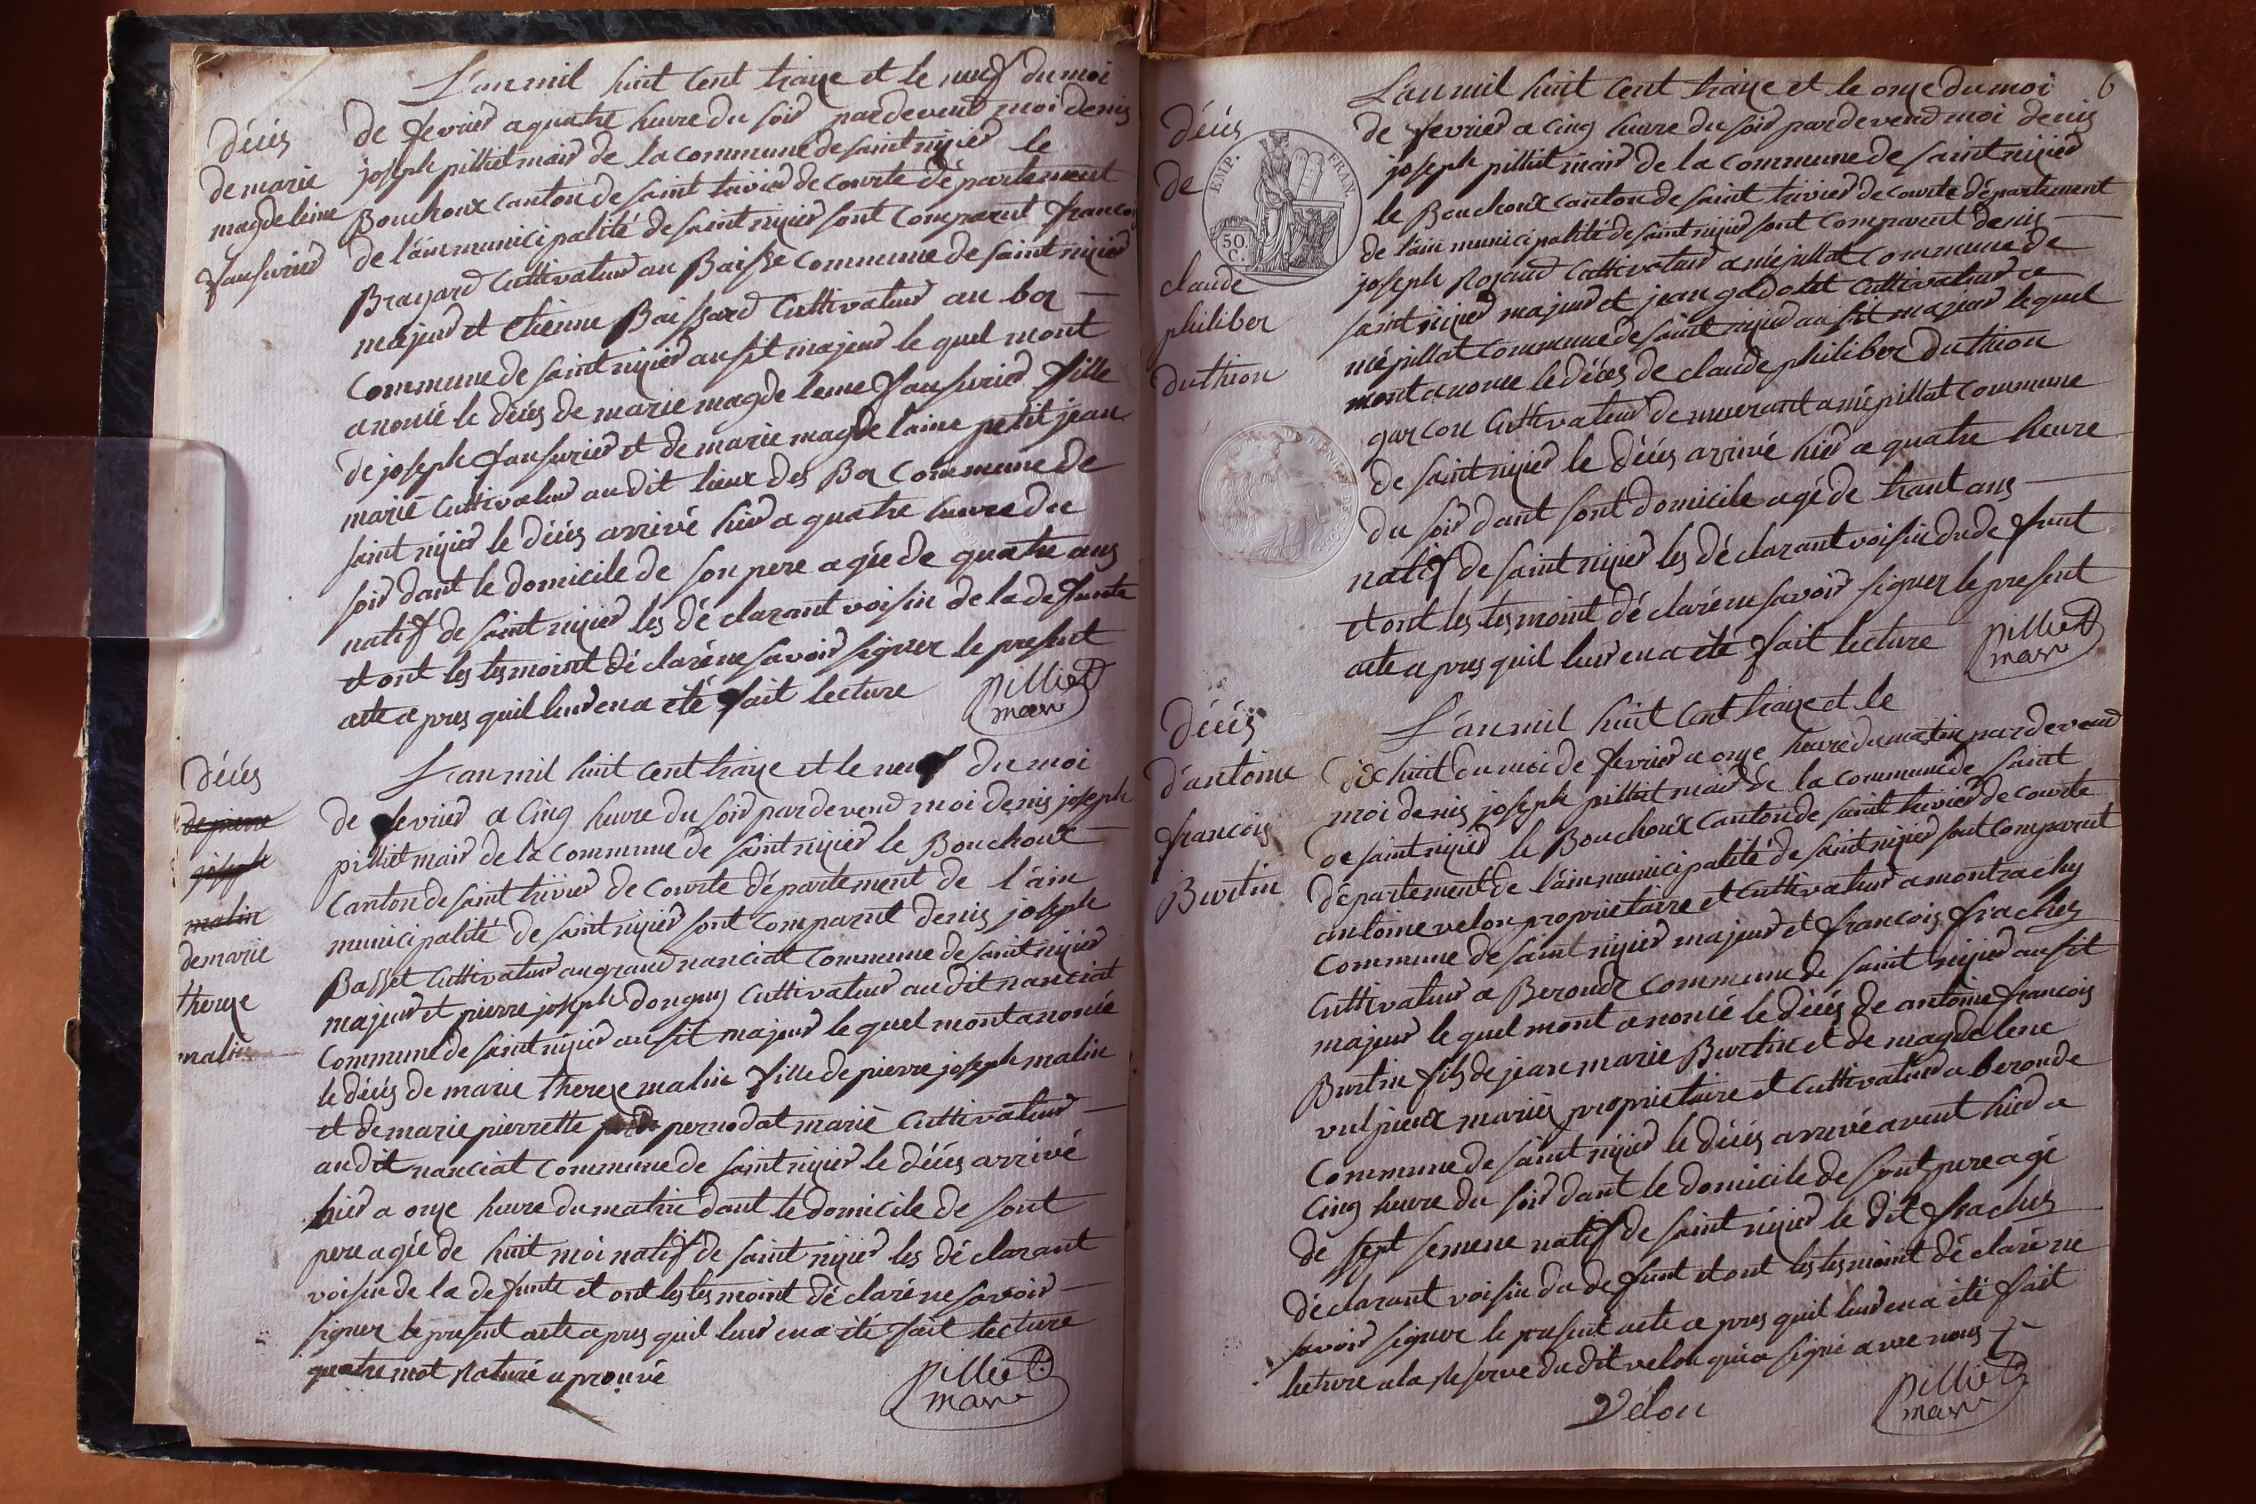 L'an mil huit cent traize et le neuf du moi
Décés
de marie
magdeleine
faussurier
de fevrier a quatre heure du soir pardevend moi denis
joseph pilliet mair de la commune de saint nizier le
Bouchoux canton de saint trivier de courte département
de l'ain municipalité de saint nizier sont comparut francois
Brayard cultivateur au Baisse commune de saint nizier
majeur et etienne Baissard cultivateur au bos
commune de saint nizier ausit majeur le quel mont
anoncé le décés de marie magdeleine faussurier fille
de joseph faussurier et de marie magdelaine petit jean
marié cultivateur audit lieux des Bos commune de
saint nizier le décés arrivé hier a quatre heure du
soir dant le domicile de son pere agée de quatre ans
natif de saint nizier les déclarant voisin de la defunte
et ont les tesmoint déclaré ne savoir signer le present
acte apres quil leur en a eté fait lecture
pilliet
mair
L'an mil huit cent traize et le neuf du moi
Décés
de pierre
joseph
malin
de marie
therese
malin
de fevrier a cinq heure du soir pardevend moi denis joseph
pilliet mair de la commune de saint nizier le Bouchoux
canton de saint trivier de courte département de l'ain
municipalité de saint nizier sont comparut denis joseph
Basset cultivateur au grand nanciat commune de saint nizier
majeur et pierre joseph dongey cultivateur audit nanciat
commune de saint nizier ausit majeur le quel mont anoncé
le décés de marie therese malin fille de pierre joseph malin
et de marie pierrette pernodat marié cultivateur
audit nanciat commune de saint nizier le décés arrivé
hier a onze heure du matin dant le domicile de sont
pere agée de huit moi natif de saint nizier les déclarant
voisin de la defunte et ont les tesmoint déclaré ne savoir
signer le present acte apres quil leur en a eté fait lecture
quatre mot raturé aprouvé
pilliet
mair
6
L'an mil huit cent traize et le onze du moi
Décés
de
EMP. FRAN.
50.
C.
claude
philiber
duthion
de fevrier a cinq heure du soir pardevend moi denis
joseph pilliet mair de la commune de saint nizier
le Bouchoux canton de saint trivier de courte département
de l'ain municipalité de saint nizier sont comparut denis
joseph Rojaud cultivateur a mépillat commune de
saint nizier majeur et jean gadolet cultivateur a
mépillat commune de saint nizier ausit majeur le quel
mont anoncé le décés de claude philiber duthion
garcon cultivateur demeurant a mépillat commune
de saint nizier le décés arrivé hier a quatre heure
du soir dant sont domicile agé de trant ans
natif de saint nizier les déclarant voisin du defunt
et ont les tesmoint déclaré ne savoir signer le present
acte apres quil leur en a eté fait lecture
pilliet
mair
L'an mil huit cent traize et le
Décés
d'antoine
francois
Burtin
dix huit du moi de fevrier a onze heure du matin pardevend
moi denis joseph pilliet mair de la commune de saint
de saint nizier le Bouchoux canton de saint trivier de courte
département de l'ain municipalité de saint nizier sont comparut
antoine velon proprietaire et cultivateur a montrachy
commune de saint nizier majeur et francois frachez
cultivateur a Beronde commune de saint nizier ausit
majeur le quel mont anoncé le décés de antoine francois
Burtin fils de jean marie Burtin et de magdelene
vulpieux mariés proprietaire et cultivateur a beronde
commune de saint nizier le décés arrivé avent hier a
cinq heure du soir dant le domicile de sont pere agé
de sept semene natif de saint nizier le dit frachez
déclarant voisin du defunt et ont les tesmoint déclaré ne
savoir signer le present acte apres quil leur en a eté fait
lecture a la reserve du dit velon qui a signé avec nous
Velon
pilliet
mair